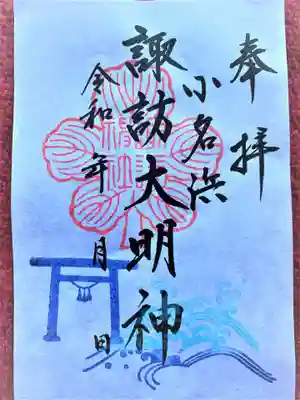 奉拝
小名浜
諏訪大明神
令和 年 月 日